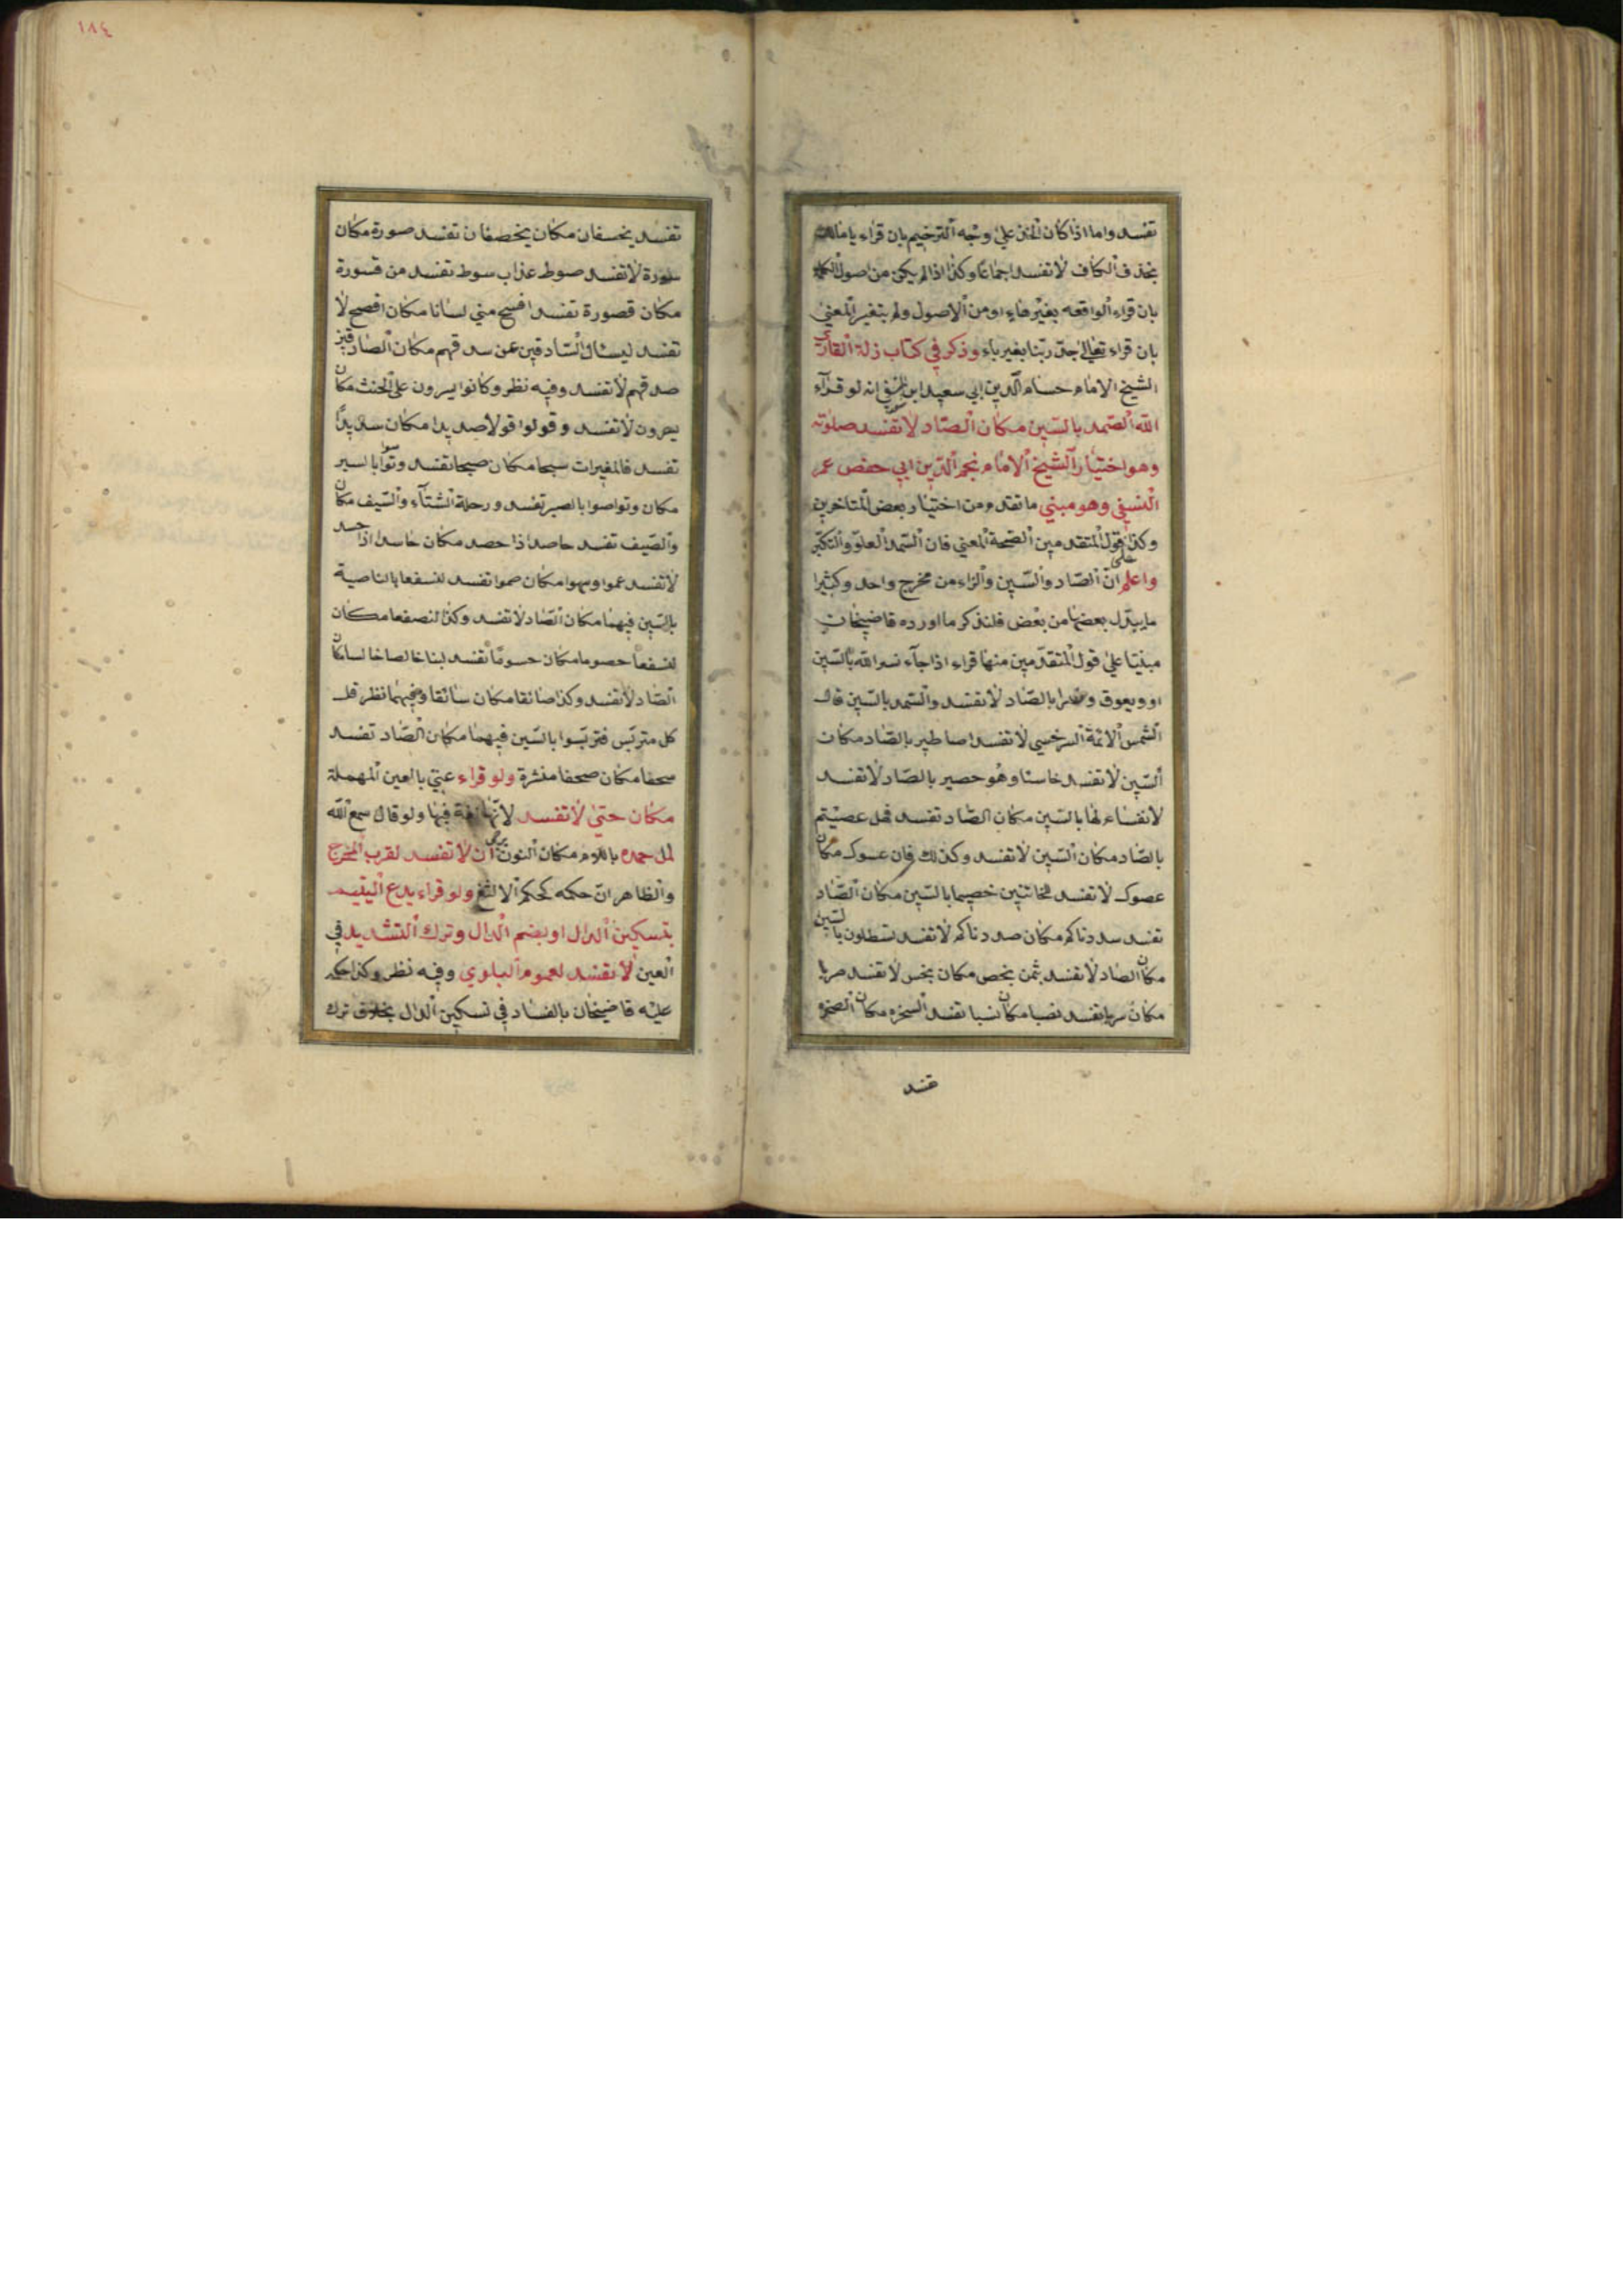 تفسد واما اذا كان الحذف على وجه الترخيم بان قراء يا مال
بحذف الكاف لا تفسد اجماعا وكذا اذا لم يكن من اصول الكلمة
بان قراء الواقعه بغير هاء او من الاصول ولم يتغير المعنى
بان قراء تعالى جد ربنا بغير ياء وذكر في كتاب زلة القارى
الشيخ الامام حسام الدين ابي سعيد ابن انه لو قراء
الله الصمد بالسين مكان الصاد لا تفسد صلوته
وهو اختيار الشيخ الامام نجم الدين ابي حفص عمر
النسفي وهو مبني ما تقدم من اختيار بعض المتاخرين
وكذا على قول المتقدمين الصحة المعنى فان السمد العلو والتكبر
واعلم ان الصاد والسين والزاء من مخرج واحد وكثيرا
ما يبدل بعضها من بعض فلنذكر ما اورده قاضيخان
مبنيا على قول المتقدمين منها قراء اذا جآء نسر الله بالسين
او ويعوق ونصرا بالصاد لا تفسد والسمد بالسين قال
الشمس الائمة السرخسي لا تفسد اصاطير بالصاد مكان
السين لا تفسد خاسئا وهو حصير بالصاد لا تفسد
لانفسام لها بالسين مكان الصاد تفسد فهل عصيتم
بالصاد مكان السين لا تفسد وكذلك فان عسوك مكان
عصوك لا تفسد للخائنين خصيما بالسين مكان الصاد
تفسد سددناكم مكان صددناكم لا تفسد تسطلون بالسين
مكان الصاد لا تفسد بثمن بخص مكان بخس لا تفسد صربا
مكان سربا تفسد نصبا مكان نسبا تفسد السخره مكان الصخره
تفسد
١٨٤
تفسد يخسفان مكان يخصفان تفسد صورة مكان
سورة لا تفسد صوط عذاب سوط تفسد من قسورة
مكان قصورة تفسد افسح مني لسانا مكان افصح لا
تفسد ليسئال السادقين عن سدقهم مكان الصادقين
صدقهم لا تفسد وفيه نظر وكانوا يسرون على الحنث مكان
يصرون لا تفسد وقولوا قولا صديدا مكان سديدا
تفسد فالمغيرات سبحا مكان صبحا تفسد وتواسوا بالسبر
مكان وتواصوا بالصبر تفسد ورحلة الشتآء والسيف مكان
والصيف تفسد حاصد اذا حصد مكان حاسد اذا حسد
لا تفسد عموا وسموا مكان صموا تفسد لنسفعا بالناصية
بالسين فيهما مكان الصاد لا تفسد وكذا لنصفعا مكان
لنسفعا حصوما مكان حسوما تفسد لبنا خالصا خالسا مكان
الصاد لا تفسد وكذا صائقا مكان سائقا وفيهما نظر قل
كل متربس فتربسوا بالسين فيهما مكان الصاد تفسد
سحفا مكان صحفا منشرة ولو قراء عتى بالعين المهملة
مكان حتى لا تفسد لانها لغة فيها ولو قال سمع الله
لمل حمده باللام مكان النون يرجى ان لا تفسد لقرب المخرج
والظاهر ان حكمه كحكم الالثغ ولو قراء يدع اليتيم
بتسكين الدال او بضم الدال وترك التشديد في
العين لا تفسد لعموم البلوى وفيه نظر وكذا حكم
عليه قاضيخان بالفساد في تسكين الدال بخلاف ترك